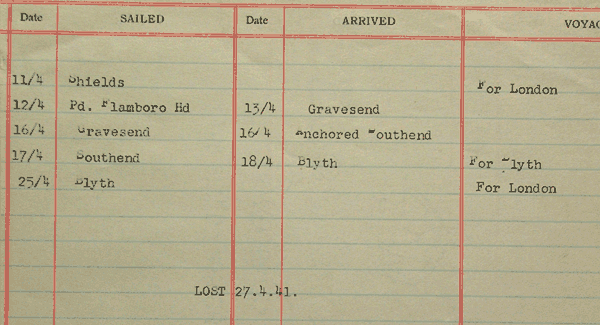 Date SAILED Date ARRIVED VOYAG
11/4 Shields For London
12/4 Pd. Flamboro Hd 13/4 Gravesend
16/4 Gravesend 16/4 Anchored Southend
17/4 Southend 18/4 Blyth For Blyth
25/4 Blyth For London
LOST 27.4.41.